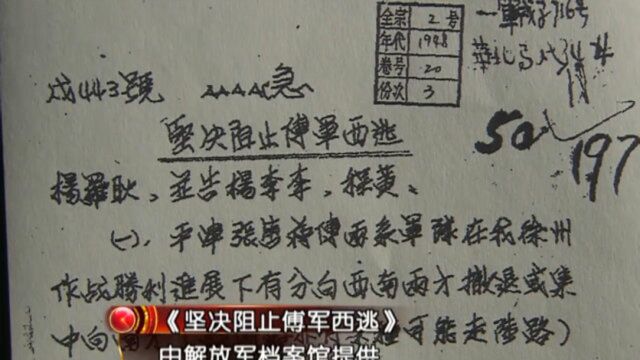 全宗 2号
年代 1948
卷号 20
份次 3
戌443號 AAAA急
50 197
堅决阻止傅軍西逃
楊羅耿，並告楊李李，程黄、
(一)、平津張唐蒋傅两系軍隊在我徐州
作战勝利進展下有分向西南两方撤退或集
中向
可能走陸路）
《坚决阻止傅军西逃》
由解放军档案馆提供